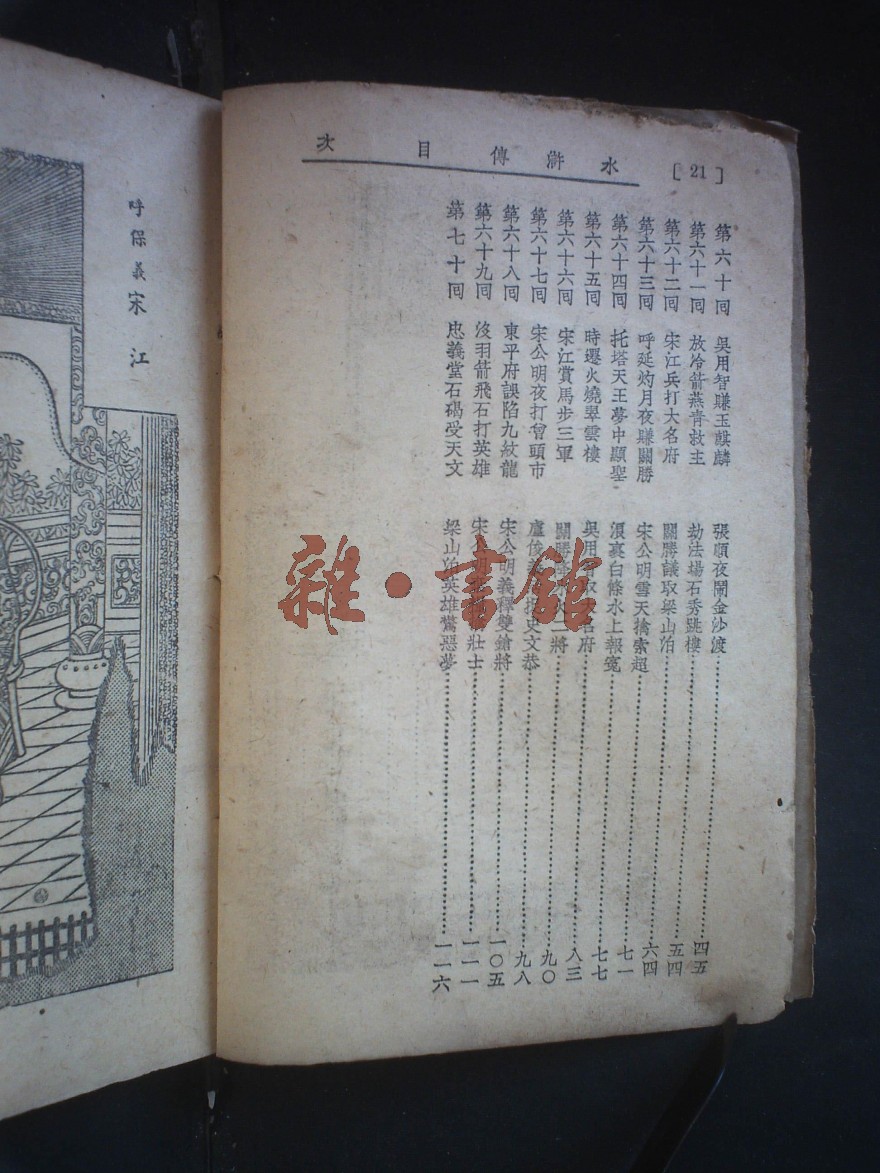 [ 21 ]
水滸傳目次
第六十回 吳用智賺玉麒麟 張順夜鬧金沙渡 四五
第六十一回 放冷箭燕青救主 劫法場石秀跳樓 五四
第六十二回 宋江兵打大名府 關勝議取梁山泊 六四
第六十三回 呼延灼月夜賺關勝 宋公明雪天擒索超 七一
第六十四回 托塔天王夢中顯聖 浪裏白條水上報冤 七七
第六十五回 時遷火燒翠雲樓 吳用取名府 八三
第六十六回 宋江賞馬步三軍 關勝二將 九〇
第六十七回 宋公明夜打曾頭市 盧俊史文恭 九八
第六十八回 東平府誤陷九紋龍 宋公明義釋雙鎗將 一〇五
第六十九回 沒羽箭飛石打英雄 宋公明壯士 一一一
第七十回 忠義堂石碣受天文 梁山泊英雄驚惡夢 一一六
呼保義宋江
雜·書館